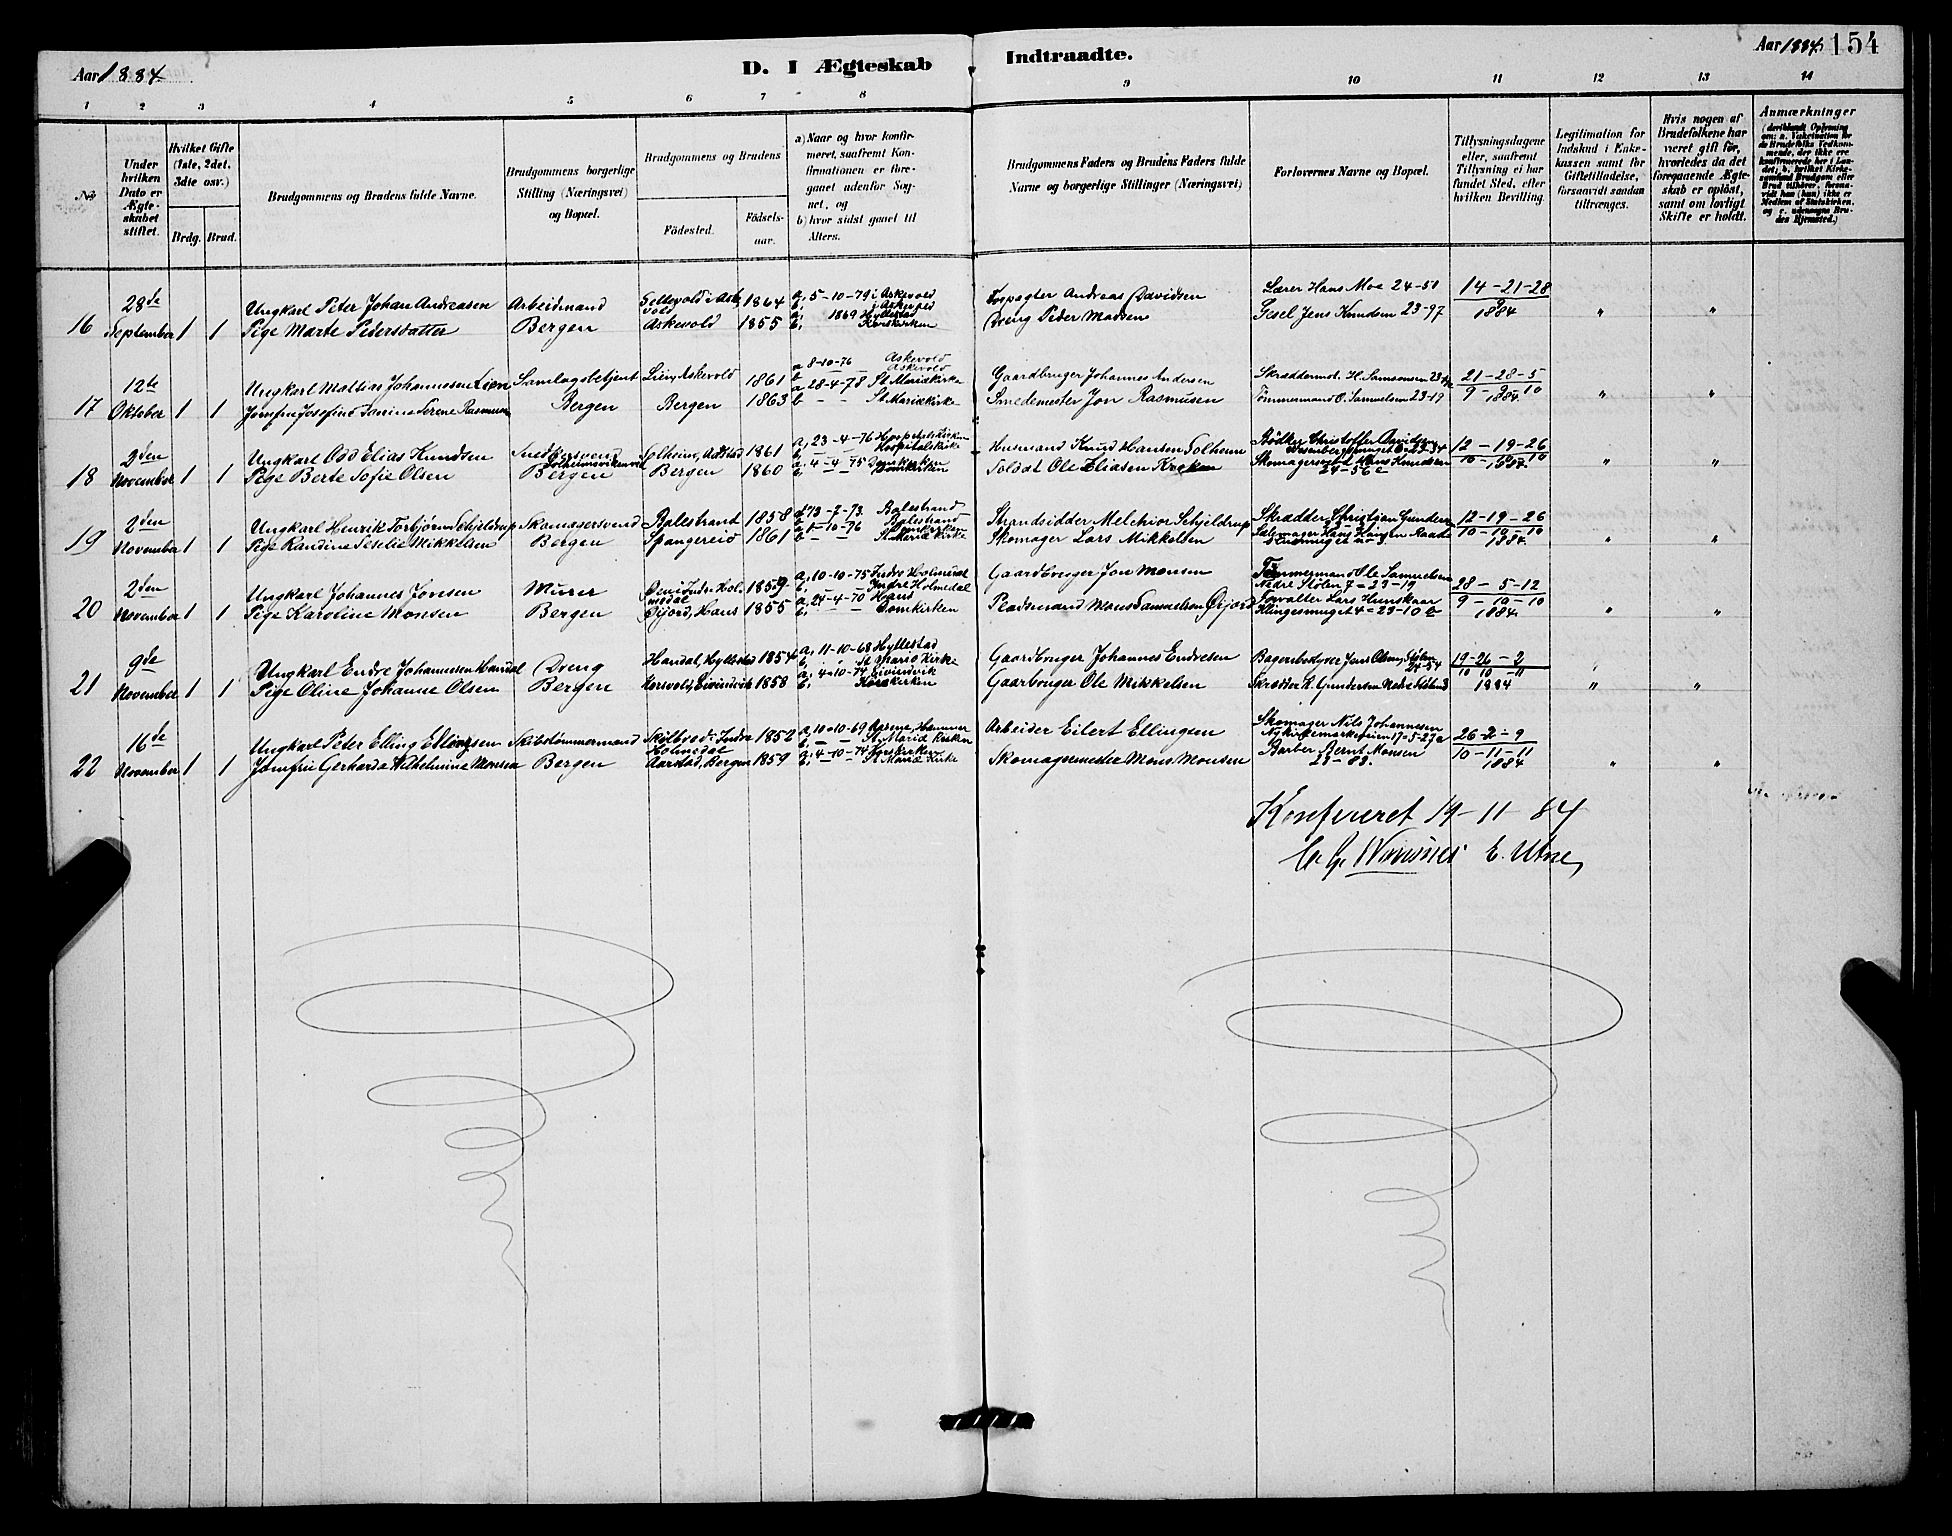 Aar 1884
D. I Ægteskab Indtraadte.
Aar 1884 154
1 2 3 4 5 6 7 8 9 10 11 12 13 14
No
Under hvilken Dato er Ægteskabet stiftet.
Hvilket Gifte (1ste, 2det, 3die osv.)
Brdg. Brud.
Brudgommens og Brudens fulde Navne.
Brudgommens borgerlige Stilling (Næringsvei) og Bopæl.
Brudgommens og Brudens
Födested. Födsels-aar.
a) Naar og hvor konfirmeret, saafremt Konfirmationen er foregaaet udenfor Sognet, og
b) hvor sidst gaaet til Alters.
Brudgommens Faders og Brudens Faders fulde Navne og borgerlige Stillinger (Næringsvei)
Forlovernes Navne og Bopæl.
Tillysningsdagene eller, saafremt Tillysning ei har fundet Sted, efter hvilken Bevilling.
Legitimation for Indskud i Enkekassen samt for Giftetilladelse, forsaavidt saadan tiltrænges.
Hvis nogen af Brudefolkene har været gift för, hvorledes da det foregaaende Ægteskab er oplöst, samt om lovligt Skifte er holdt.
Anmærkninger
16 28de September 1 1
Ungkarl Peter Johan Andreasen
Pige Marte Pedersdatter
Arbeidmand
Bergen
Askevold
1864
1855
a, 5-10-79 i Askevold
b, i Askevold
a, 1869 Hyllestad
b, Korskirken
Forpagter Andreas Davidsen
Dreng Peder Madsen
Lærer Hans Moe 24-50
Gesel Jens Knudsen 23-97
14-21-28
9
1884
" "
17 12te Oktober 1 1
Ungkarl Mathias Johannesen Lien
Jomfru Josefine Janine Serene Rasmusen
Samlagsbetjent
Bergen
Lien, Askevold
Bergen
1861
1863
a 8-10-76 Askevold
b Askevold
a 28-4-78 St. Mariæ Kirke
b - - St. Mariæ Kirke
Gaardbruger Johannes Andersen
Smedemester Jon Rasmusen
Skræddermst. H. Samsonsen
Tömmermand O. Samuelsen 23-19
21-28-5
9 - 10
1884
" "
18 2den November 1 1
Ungkarl Odd Elias Knudsen
Pige Berte Sofie Olsen
Smedsvend
Solheimsviken
Bergen
Solheim, Aarstad
Bergen
1861
1860
a, 23-4-76 Hospitalskirken
b, Hospitalskirke
a, 4-4-75 Domkirken
b, Domkirken
Husmand Knud Hansen Solheim
Soldat Ole Eliasen Kroken
Bödker Christoffer Davidsen
Skomagersvend Hans Knudsen
24-56 c
12-19-26
10-10-10
1884
" "
19 2den November 1 1
Ungkarl Henrik Torbjörn Schjeldrup
Pige Randine Seselie Mikkelsen
Skomagersvend
Bergen
Balestrand
Spangereid
1858
1861
a 13-7-73 Balestrand
b Balestrand
a 1-10-76 Domkirken
b - - St. Mariæ Kirke
Strandsidder Melchior Schjeldrup
Skomager Lars Mikkelsen
Skrædder Christian Gundersen
Salmager Hans Hansen Raade
12-19-26
10-10-10
1884
" "
20 2den November 1 1
Ungkarl Johannes Jonsen
Pige Karoline Monsen
Murer
Bergen
Indre Holmedal
Öijord, Haus
1859
1855
a, 10-10-75 Indre Holmedal
b, Indre Holmedal
a, 24-4-70 Haus
b, - Domkirken
Gaardbruger Jon Monsen
Pladsmand Mons Samuelsen Öijord
Tömmermand Ole Samuelsen
Nedre Stölen 7 = 23-19
Forvalter Lars Hunskaar
Klingesmuget 4 = 23-10 b
28-5-12
9-10-10
1884
" "
21 9de November 1 1
Ungkarl Endre Johannesen Handal
Pige Oline Johanne Olsen
Dreng
Bergen
Handal, Hyllestad
Eivindvik
1854
1858
a, 11-10-68 Hyllestad
b, St. Mariæ Kirke
a, 4-10-74 Eivindvik
b, Korskirken
Gaardbruger Johannes Endresen
Gaarbruger Ole Mikkelsen
Bagerbestyrer Jens Olsen, Stölen
24-54
Skrædder K. Gundersen
19-26-2
10 10 -11
1884
" "
22 16de November 1 1
Ungkarl Peter Elling Ellingsen
Jomfru Gerharda Vilhelmine Monsen
Skibstömmermand
Bergen
Indre Holmedal
Aarstad, Bergen
1852
1859
a, 10-10-69
b, - - St. Mariæ Kirken
a, 4-10-74 Korskirken
b, St. Mariæ Kirke
Arbeider Eilert Ellingsen
Skomagermester Mons Monsen
Skomager Nils Johannesen
Barber Bernt Monsen
23-83.
26-2-9
10-11-11
1884
" "
Konfereret 19-11-84
E. Utne